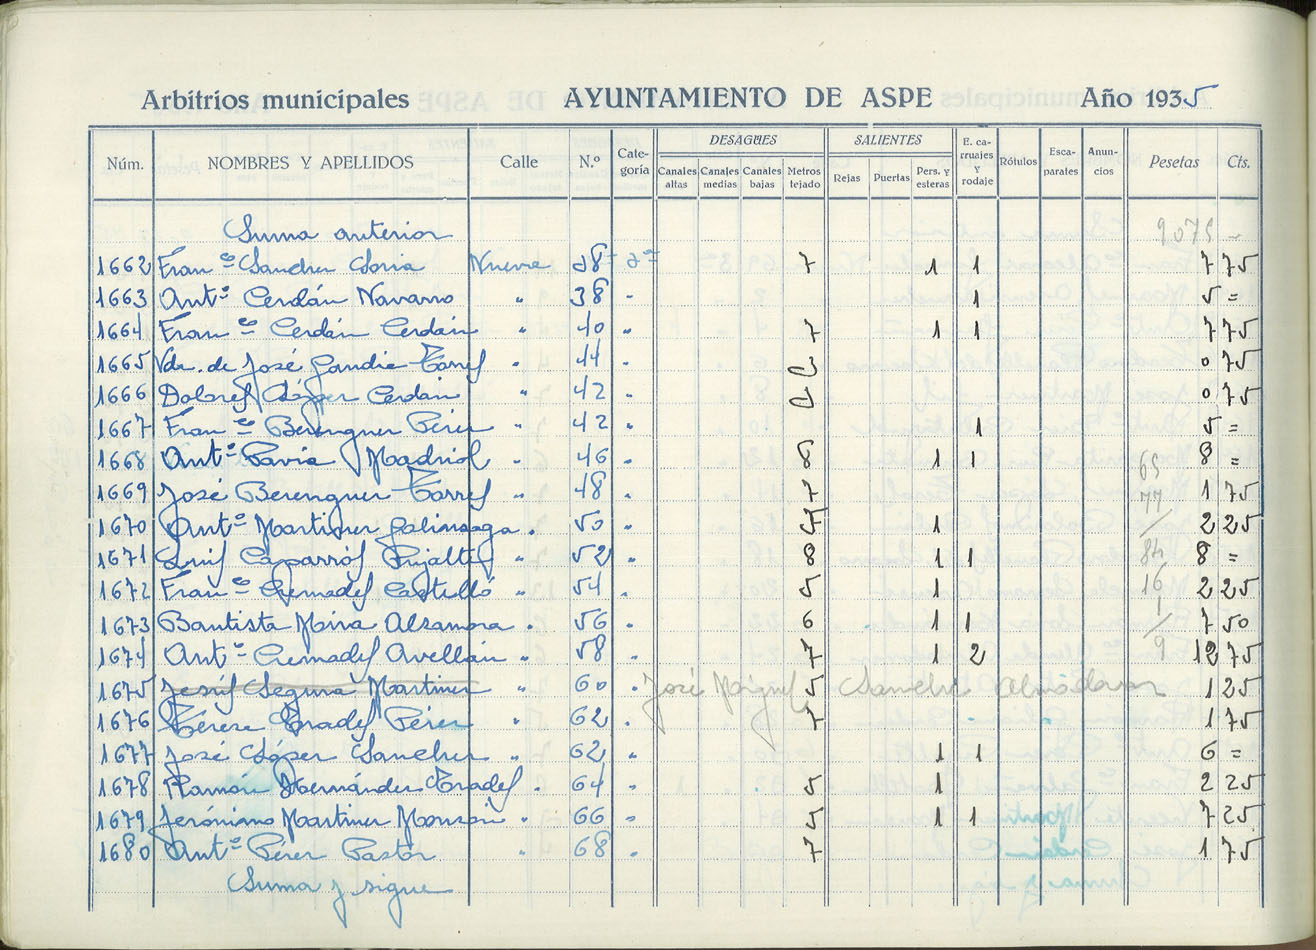 Arbitrios municipales AYUNTAMIENTO DE ASPE Año 1935
DESAGÜES SALIENTES
Núm. NOMBRES Y APELLIDOS Calle N.º Cate-goría Canales altas Canales medias Canales bajas Metros tejado Rejas Puertas Pers. y esteras E. ca-rruajes y rodaje Rótulos Esca-parates Anun-cios Pesetas Cts.
Suma anterior 9075 =
1662 Fran.co Sanchez Soria Nueva 38 2ª 7 1 1 7 75
1663 Ant.º Cerdán Navarro " 38 " 1 5 =
1664 Fran.co Cerdán Cerdán " 40 " 7 1 1 7 75
1665 Vda. de José Gandía Torres " 44 " 3 0 75
1666 Dolores López Cerdán " 42 " 3 0 75
1667 Fran.co Berenguer Pérez " 42 " 1 5 =
1668 Ant.º Pavia Madrid " 46 " 8 1 1 8 =
1669 José Berenguer Torres " 48 " 7 1 75
1670 Ant.º Martinez Galinsoga " 50 " 5 1 2 25
1671 Luis Caparrós Pujalte " 52 " 8 1 1 8 =
1672 Fran.co Cremades Castelló " 54 " 5 1 2 25
1673 Bautista Mira Alzamora " 56 " 6 1 1 7 50
1674 Ant.º Cremades Avellán " 58 " 7 1 2 12 75
1675 Jesús Segura Martinez " 60 " José Miguel 5 Sanchez Almodovar 1 25
1676 Terese Prades Pérez " 62 " 7 1 75
1677 José López Sanchez " 62 " 1 1 6 =
1678 Ramón Hernández Prades " 64 " 5 1 2 25
1679 Jerónimo Martinez Monzón " 66 " 5 1 1 7 25
1680 Ant.º Pérez Pastor " 68 " 7 1 75
Suma y sigue